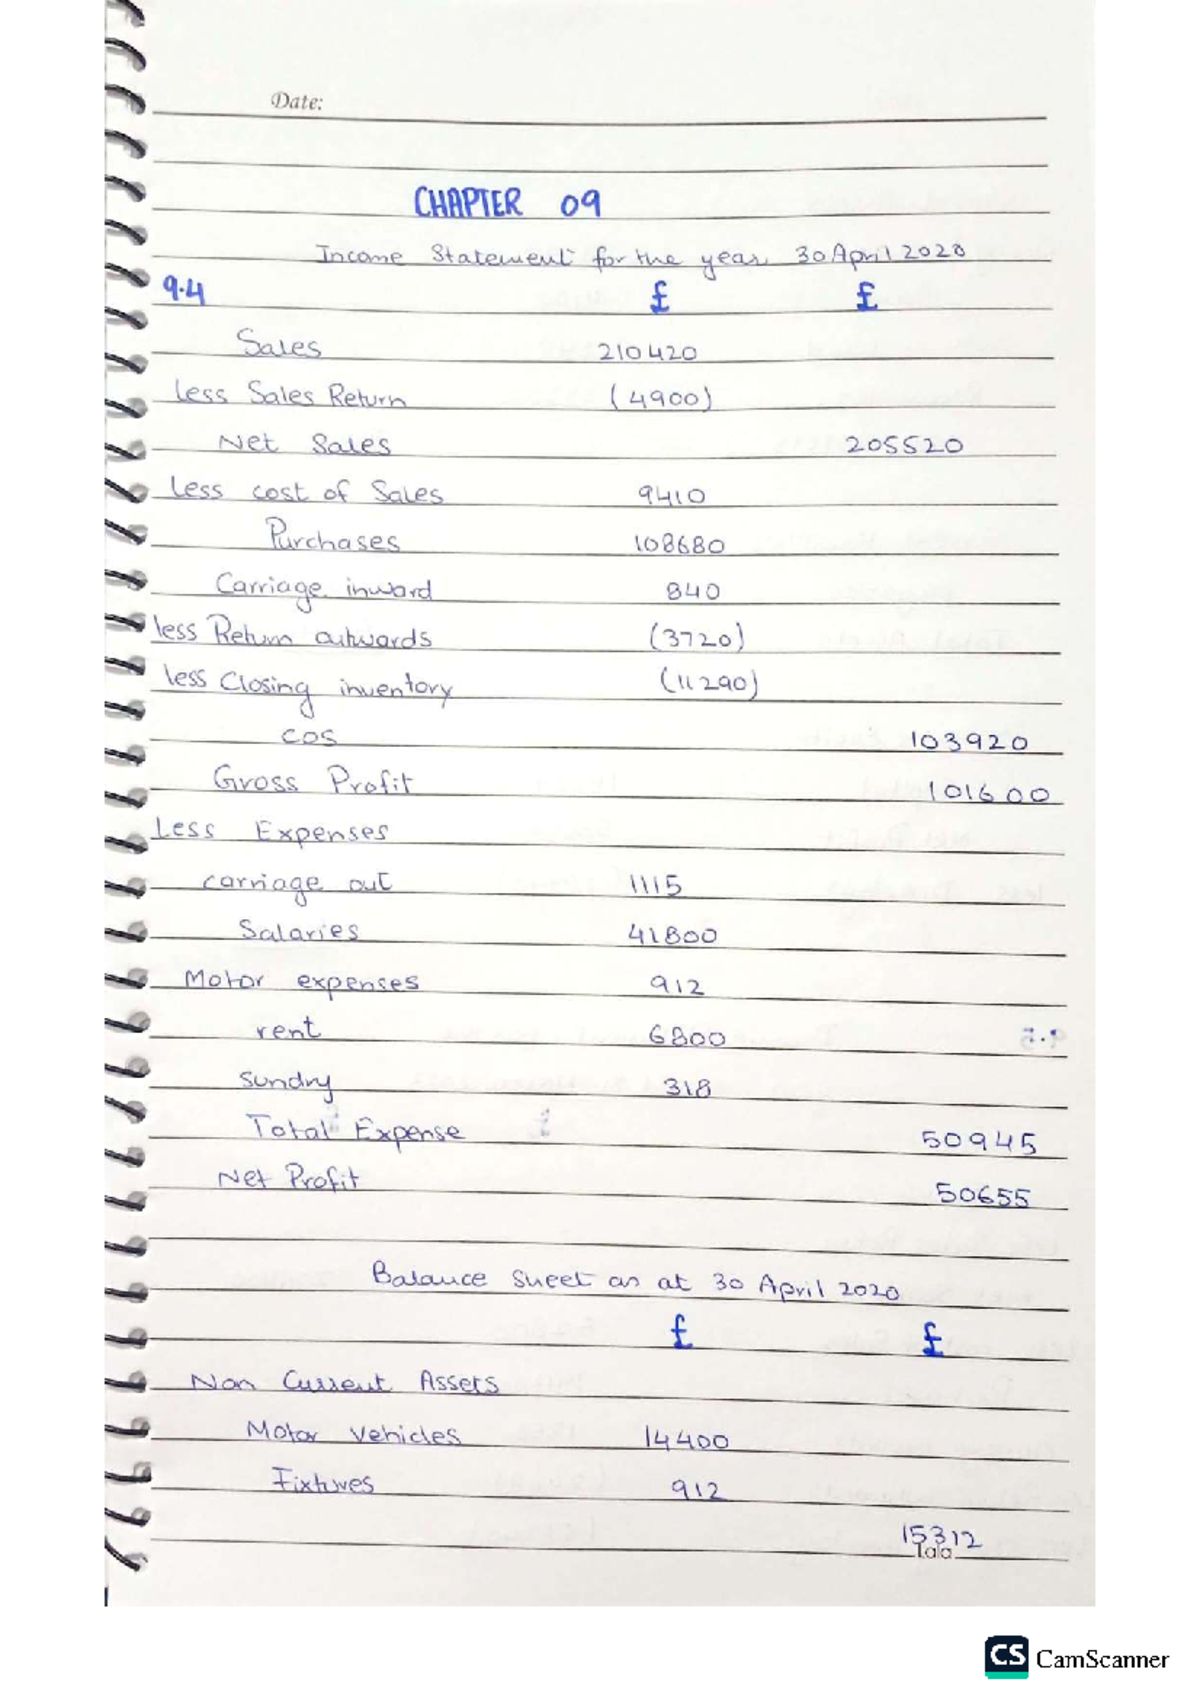 Date:
CHAPTER 09
Income Statement for the year 30 April 2020
9.4 £ £
Sales 210420
less Sales Return (4900)
Net Sales 205520
less cost of Sales 9410
Purchases 108680
Carriage inward 840
less Return outwards (3720)
less Closing inventory (11290)
COS 103920
Gross Profit 101600
Less Expenses
carriage out 1115
Salaries 41800
Motor expenses 912
rent 6800
Sundry 318
Total Expense 50945
Net Profit 50655
Balance sheet as at 30 April 2020
£ £
Non Current Assets
Motor Vehicles 14400
Fixtures 912
15312
Lala
CS CamScanner